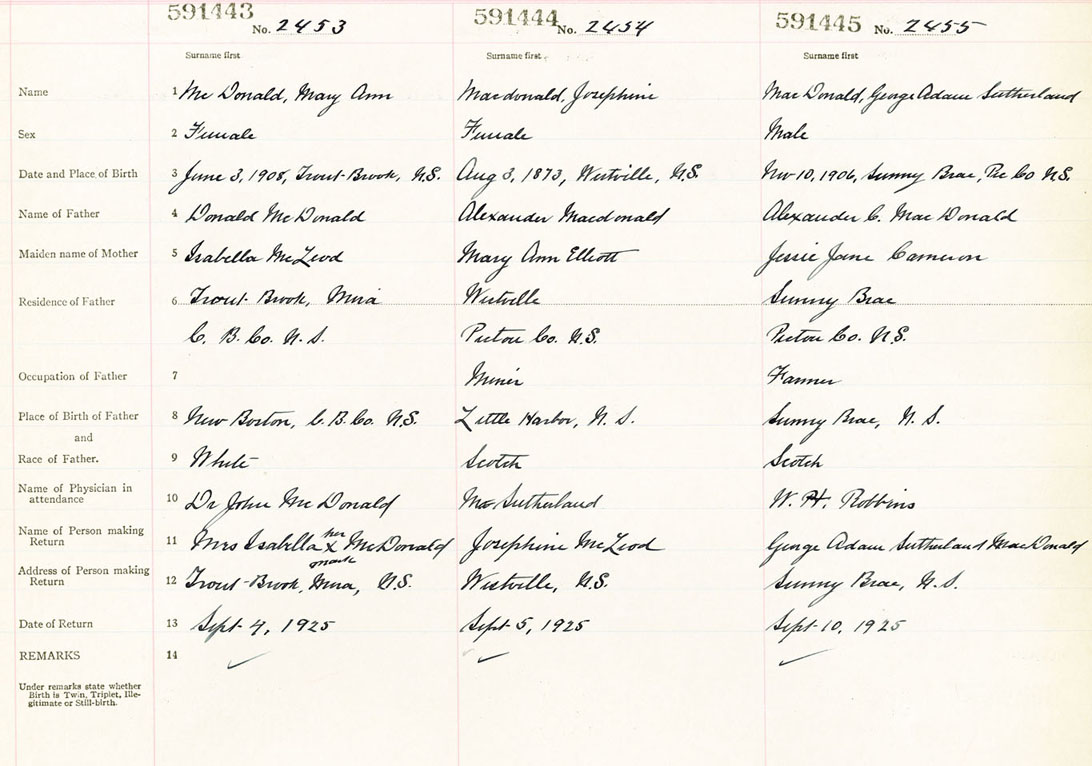 591443 No. 2453 591444 No. 2454 591445 No. 2455
Surname first Surname first Surname first
Name 1 Mc Donald, Mary Ann Macdonald, Josephine Mac Donald, George Adam Sutherland
Sex 2 Female Female Male
Date and Place of Birth 3 June 3, 1908, Trout-Brook, N.S. Aug 3, 1873, Westville, N.S. Nov 10, 1906, Sunny Brae, Pic Co N.S.
Name of Father 4 Donald McDonald Alexander Macdonald Alexander C. Mac Donald
Maiden name of Mother 5 Isabella McLeod Mary Ann Elliott Jessie Jane Cameron
Residence of Father 6 Trout-Brook, Mira Westville Sunny Brae
C. B. Co. N.S. Pictou Co. N.S. Pictou Co. N.S.
Occupation of Father 7 Miner Farmer
Place of Birth of Father 8 New Boston, C.B.Co. N.S. Little Harbor, N.S. Sunny Brae, N.S.
and
Race of Father. 9 White Scotch Scotch
Name of Physician in
attendance 10 Dr John McDonald Sutherland W. H. Robbins
Name of Person making
Return 11 Mrs Isabella her x mark McDonald Josephine McLeod George Adam Sutherland MacDonald
Address of Person making
Return 12 Trout-Brook, Mira, N.S. Westville, N.S. Sunny Brae, N.S.
Date of Return 13 Sept 4, 1925 Sept 5, 1925 Sept 10, 1925
REMARKS 14 ✓ ✓ ✓
Under remarks state whether
Birth is Twin, Triplet, Ille-
gitimate or Still-birth.